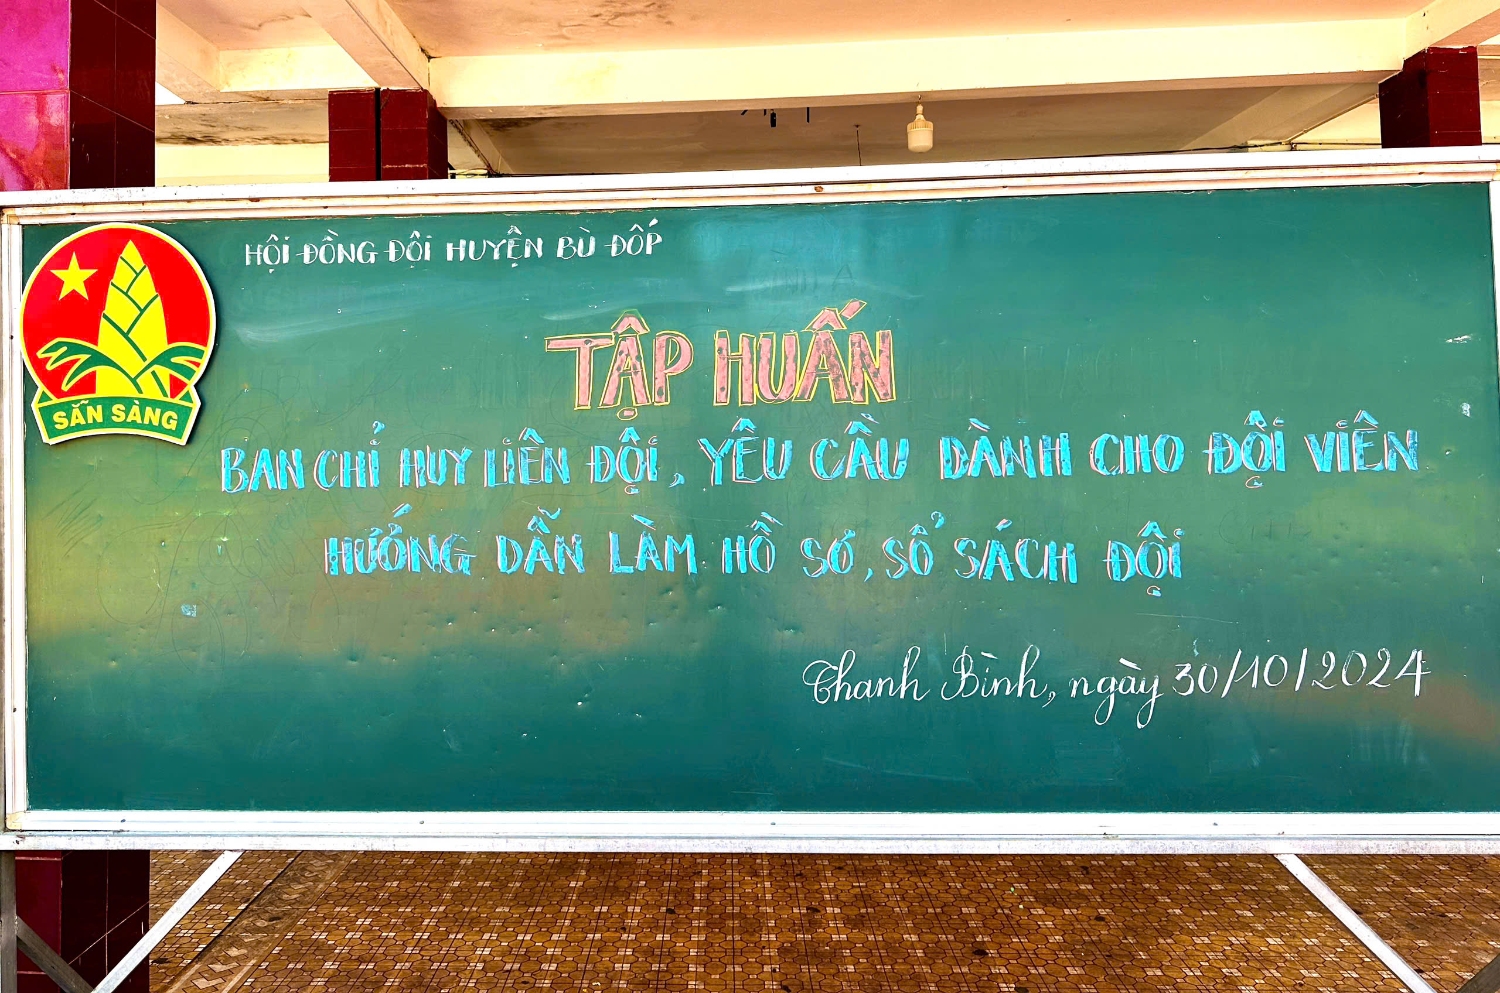 HỘI ĐỒNG ĐỘI HUYỆN BÙ ĐỐP
SẴN SÀNG
TẬP HUẤN
BAN CHỈ HUY LIÊN ĐỘI, YÊU CẦU DÀNH CHO ĐỘI VIÊN
HƯỚNG DẪN LÀM HỒ SƠ, SỔ SÁCH ĐỘI
Thanh Bình, ngày 30/10/2024